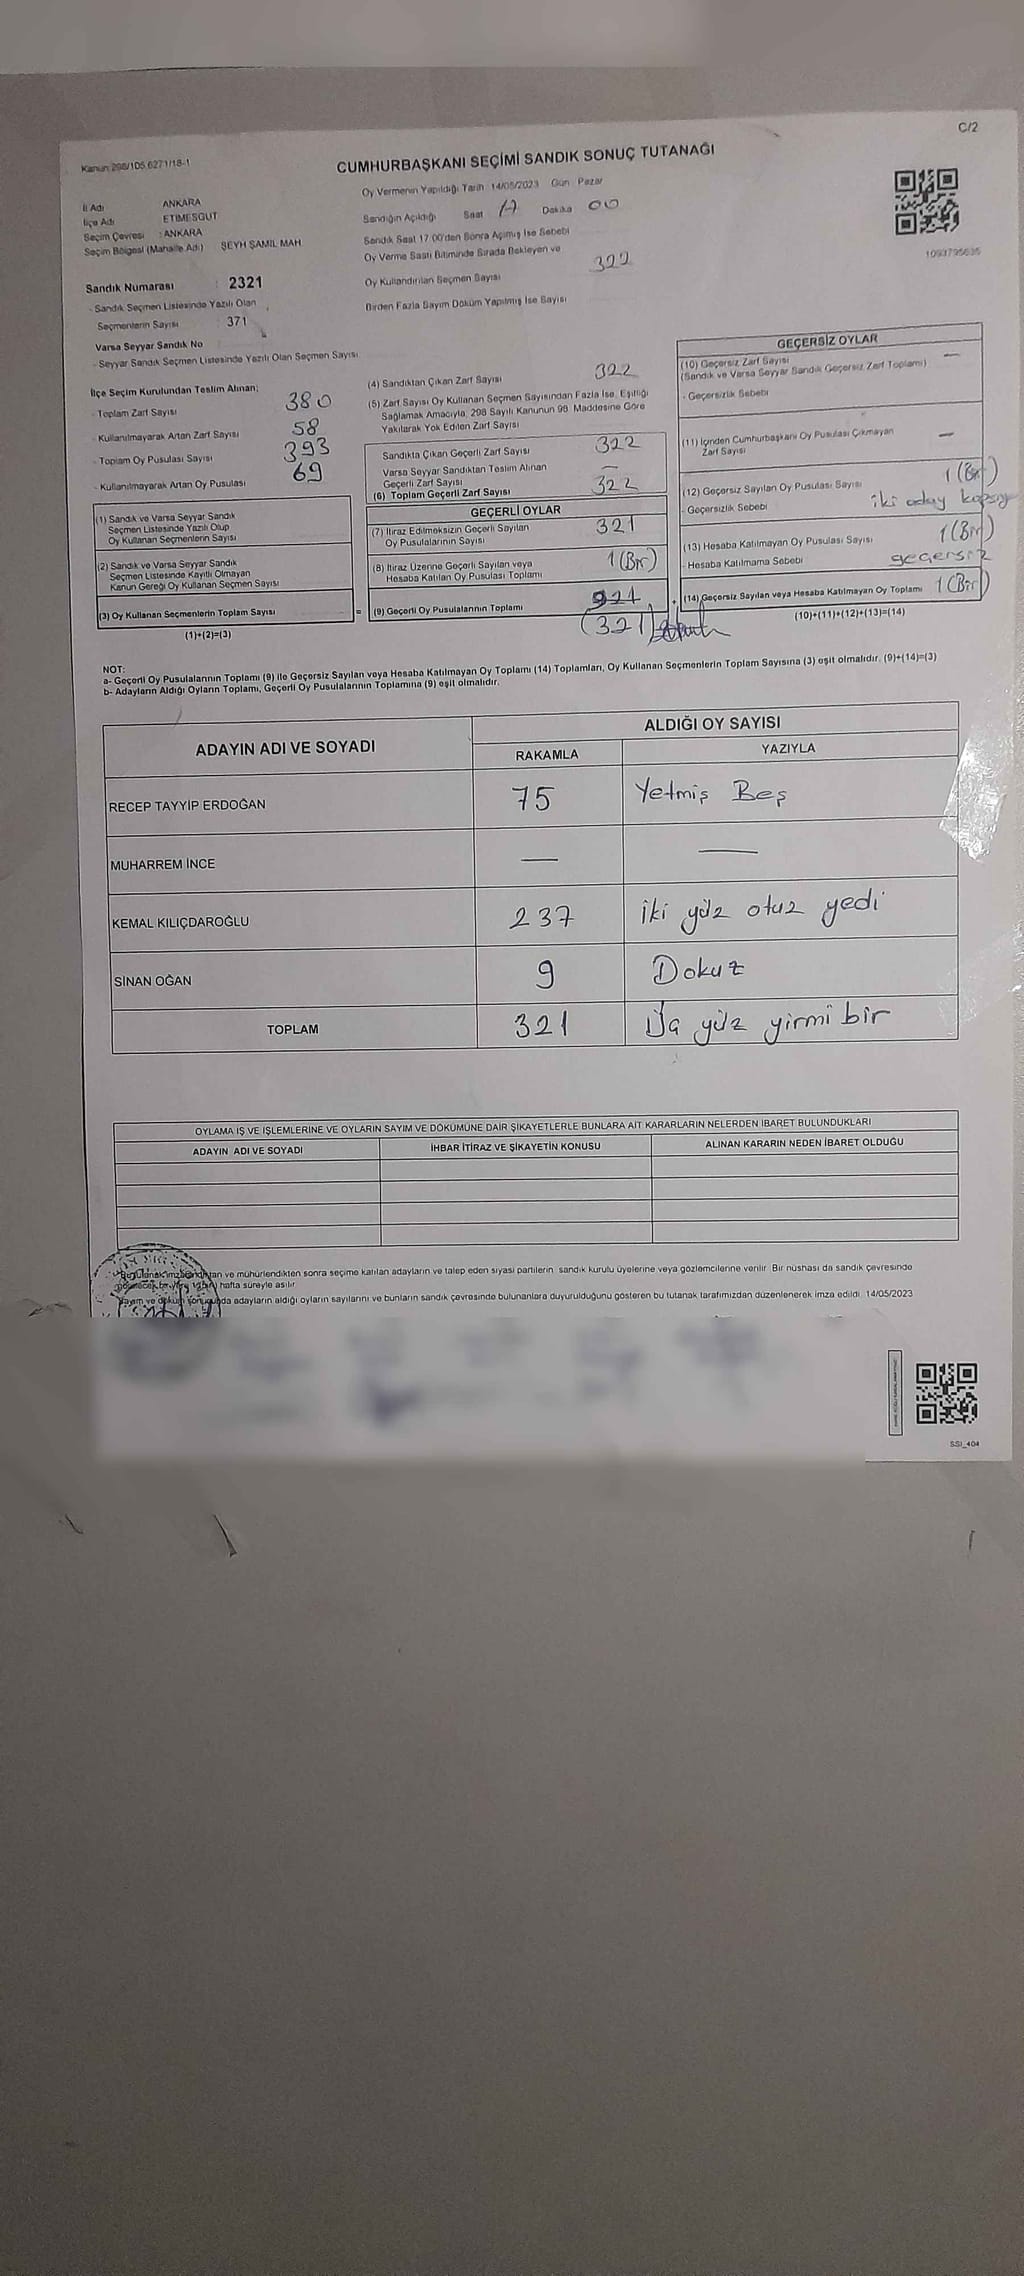 C/2
Kanun:298/105,6271/18-1
CUMHURBAŞKANI SEÇİMİ SANDIK SONUÇ TUTANAĞI
Oy Vermenin Yapıldığı Tarih 14/05/2023 Gün Pazar
İl Adı ANKARA
İlçe Adı ETİMESGUT
Seçim Çevresi : ANKARA
Seçim Bölgesi (Mahalle Adı) ŞEYH ŞAMİL MAH
Sandığın Açıldığı Saat 17 Dakika 00
Sandık Saat 17:00'den Sonra Açılmış İse Sebebi
Oy Verme Saati Bitiminde Sırada Bekleyen ve
Oy Kullandırılan Seçmen Sayısı 322
Birden Fazla Sayım Döküm Yapılmış İse Sayısı
1093795635
Sandık Numarası : 2321
- Sandık Seçmen Listesinde Yazılı Olan
Seçmenlerin Sayısı : 371
Varsa Seyyar Sandık No
- Seyyar Sandık Seçmen Listesinde Yazılı Olan Seçmen Sayısı
İlçe Seçim Kurulundan Teslim Alınan;
- Toplam Zarf Sayısı 380
- Kullanılmayarak Artan Zarf Sayısı 58
- Toplam Oy Pusulası Sayısı 393
- Kullanılmayarak Artan Oy Pusulası 69
(1) Sandık ve Varsa Seyyar Sandık
Seçmen Listesinde Yazılı Olup
Oy Kullanan Seçmenlerin Sayısı
(2) Sandık ve Varsa Seyyar Sandık
Seçmen Listesinde Kayıtlı Olmayan
Kanun Gereği Oy Kullanan Seçmen Sayısı
(3) Oy Kullanan Seçmenlerin Toplam Sayısı
(1)+(2)=(3)
(4) Sandıktan Çıkan Zarf Sayısı 322
(5) Zarf Sayısı Oy Kullanan Seçmen Sayısından Fazla İse, Eşitliği
Sağlamak Amacıyla, 298 Sayılı Kanunun 98. Maddesine Göre
Yakılarak Yok Edilen Zarf Sayısı
Sandıkta Çıkan Geçerli Zarf Sayısı 322
Varsa Seyyar Sandıktan Teslim Alınan
Geçerli Zarf Sayısı —
(6) Toplam Geçerli Zarf Sayısı 322
GEÇERLİ OYLAR
(7) İtiraz Edilmeksizin Geçerli Sayılan
Oy Pusulalarının Sayısı 321
(8) İtiraz Üzerine Geçerli Sayılan veya
Hesaba Katılan Oy Pusulası Toplamı 1 (Bir)
= (9) Geçerli Oy Pusulalarının Toplamı
(321)
GEÇERSİZ OYLAR
(10) Geçersiz Zarf Sayısı —
(Sandık ve Varsa Seyyar Sandık Geçersiz Zarf Toplamı)
- Geçersizlik Sebebi
(11) İçinden Cumhurbaşkanı Oy Pusulası Çıkmayan
Zarf Sayısı —
(12) Geçersiz Sayılan Oy Pusulası Sayısı 1 (Bir)
- Geçersizlik Sebebi iki aday
(13) Hesaba Katılmayan Oy Pusulası Sayısı 1 (Bir)
- Hesaba Katılmama Sebebi geçersiz
+ (14) Geçersiz Sayılan veya Hesaba Katılmayan Oy Toplamı 1 (Bir)
(10)+(11)+(12)+(13)=(14)
NOT:
a- Geçerli Oy Pusulalarının Toplamı (9) ile Geçersiz Sayılan veya Hesaba Katılmayan Oy Toplamı (14) Toplamları, Oy Kullanan Seçmenlerin Toplam Sayısına (3) eşit olmalıdır. (9)+(14)=(3)
b- Adayların Aldığı Oyların Toplamı, Geçerli Oy Pusulalarının Toplamına (9) eşit olmalıdır.
ADAYIN ADI VE SOYADI ALDIĞI OY SAYISI
RAKAMLA YAZIYLA
RECEP TAYYİP ERDOĞAN 75 Yetmiş Beş
MUHARREM İNCE — —
KEMAL KILIÇDAROĞLU 237 İki yüz otuz yedi
SİNAN OĞAN 9 Dokuz
TOPLAM 321 Üç yüz yirmi bir
OYLAMA İŞ VE İŞLEMLERİNE VE OYLARIN SAYIM VE DÖKÜMÜNE DAİR ŞİKAYETLERLE BUNLARA AİT KARARLARIN NELERDEN İBARET BULUNDUKLARI
ADAYIN ADI VE SOYADI İHBAR İTİRAZ VE ŞİKAYETİN KONUSU ALINAN KARARIN NEDEN İBARET OLDUĞU
ve mühürlendikten sonra seçime katılan adayların ve talep eden siyasi partilerin sandık kurulu üyelerine veya gözlemcilerine verilir. Bir nüshası da sandık çevresinde
hafta süreyle asılır.
Sayım ve döküm sonucunda adayların aldığı oyların sayılarını ve bunların sandık çevresinde bulunanlara duyurulduğunu gösteren bu tutanak tarafımızdan düzenlenerek imza edildi. 14/05/2023
SSI_404